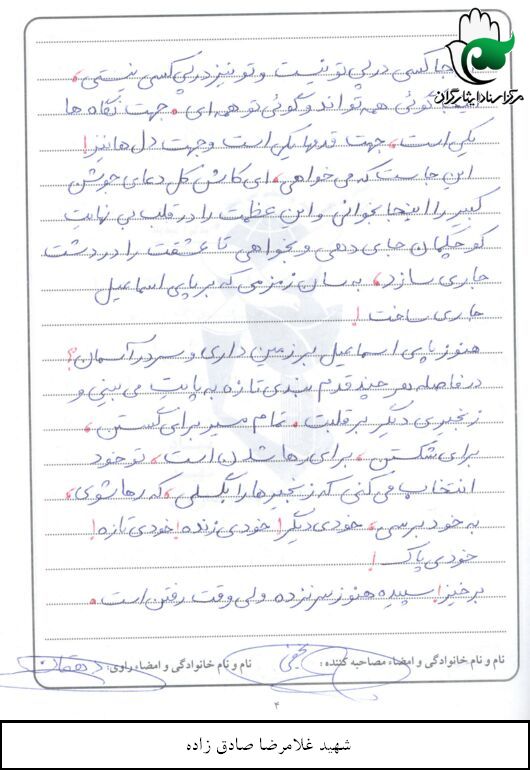 مرکز اسناد ایثارگران
جا کسی در پی تو نیست و تو نیز در پی کسی نیستی،
گوئی همه تواند و گوئی تو همه ای. جهت نگاه ها
یکی است، جهت قدمها یکی است وجهت دل ها نیز!
این جاست که می خواهی، ای کاش کل دعای جوشن
کبیر را اینجا بخوانی و این عظمت را در قلب بی نهایت
کوچکمان جای دهی و بخواهی تا عشقت را در دشت
جاری سازد، به سان زمزمی که بر پای اسماعیل
جاری ساخت!
هنوز پای اسماعیل بر زمین داری و سر در آسمان؟
در فاصله هر چند قدم بندی تازه به پایت می بینی و
زنجیری دیگر بر قلبت. تمام مسیر برای گسستن،
برای شکستن، برای رها شدن است، تو خود
انتخاب می کنی که زنجیرها را بگسلی، که رها شوی،
به خود برسی، خودی دیگر! خودی زنده! خودی تازه!
خودی پاک!
برخیز! سپیده هنوز سر نزده ولی وقت رفتن است.
نام و نام خانوادگی و امضاء مصاحبه کننده :
نام و نام خانوادگی و امضاء راوی: دهقان
۴
شهید غلامرضا صادق زاده